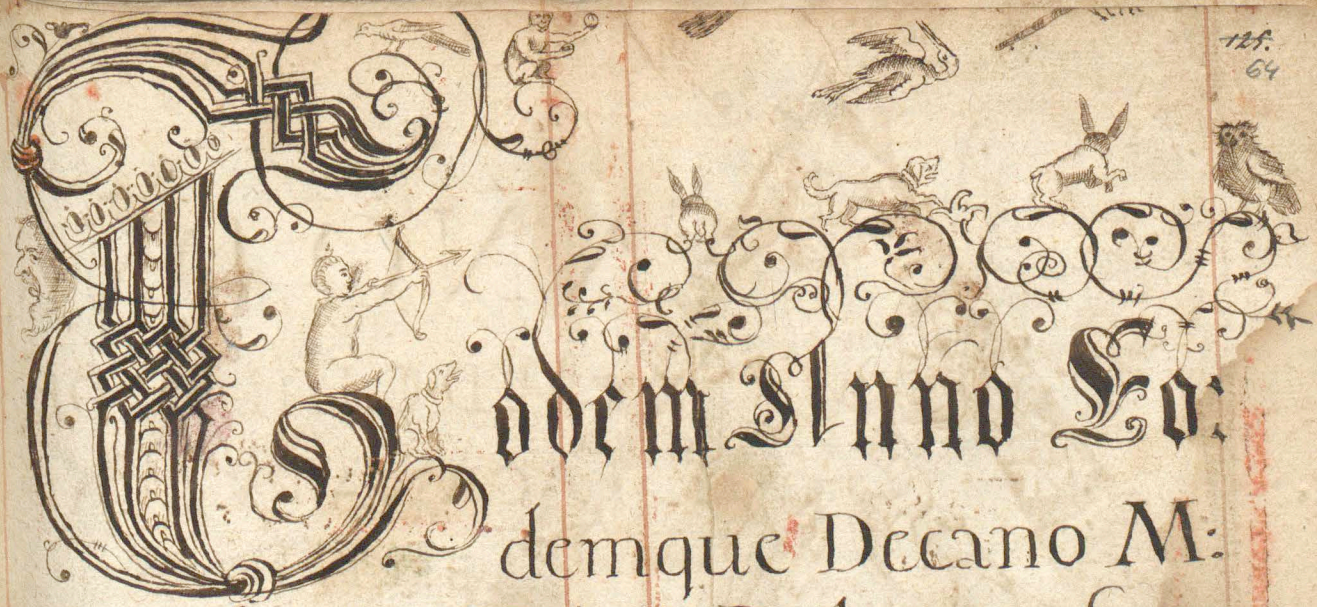 125.
64
Eodem Anno Eo:
demque Decano M: